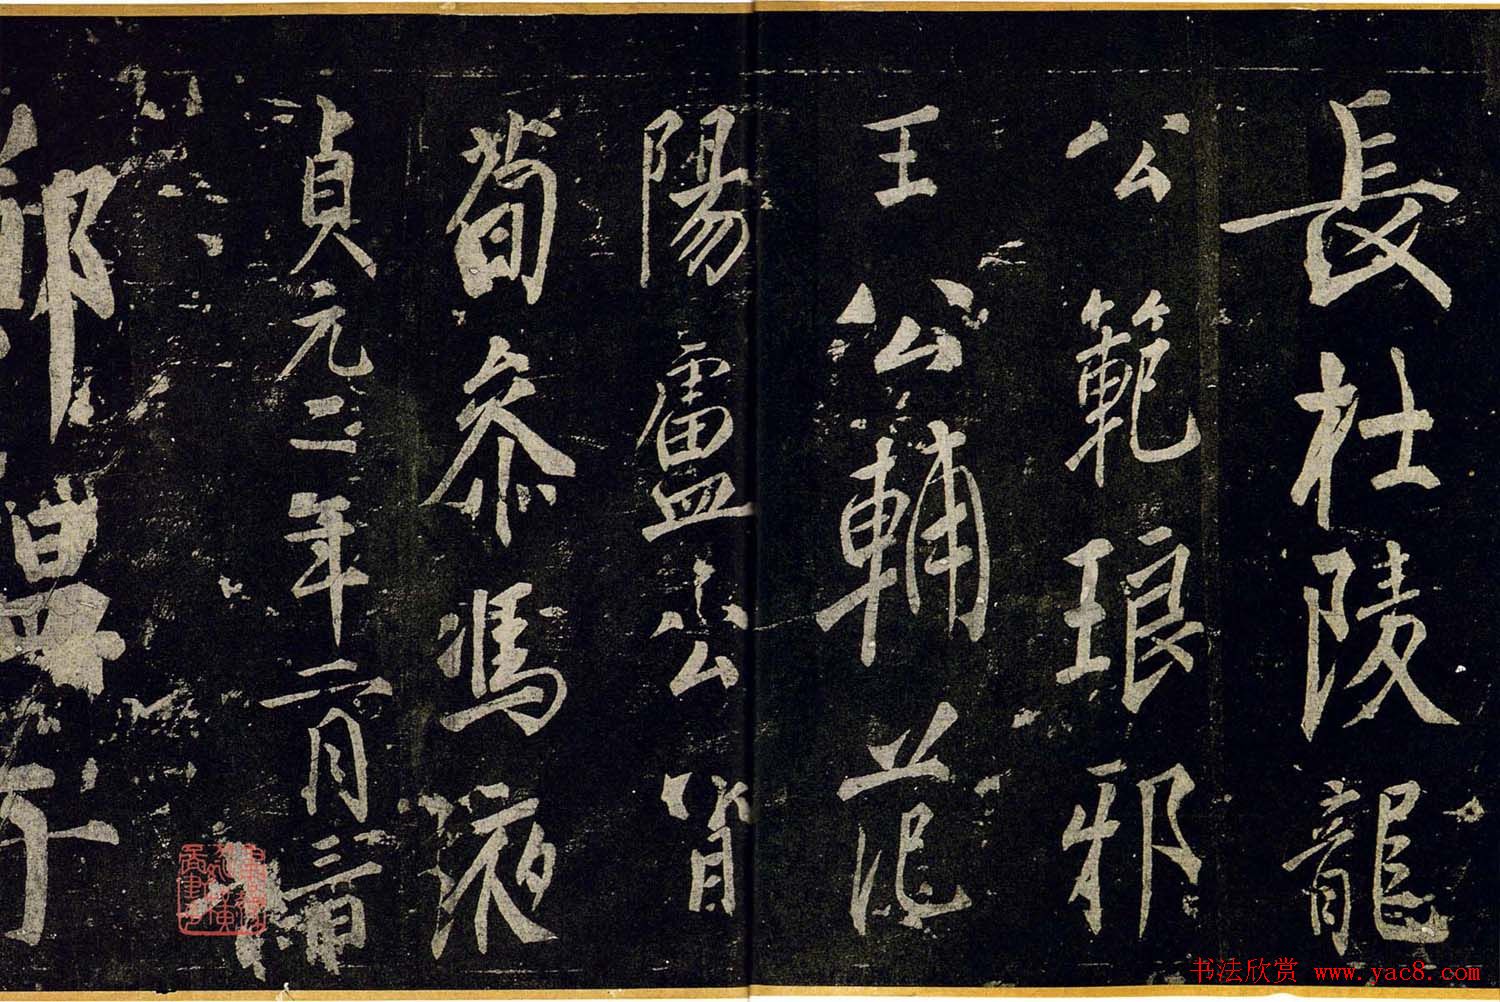 長杜陵龍
公範琅邪
王公輔范
陽盧公
荀叅馮液
貞元二年二月三日
书法欣赏 www.yac8.com